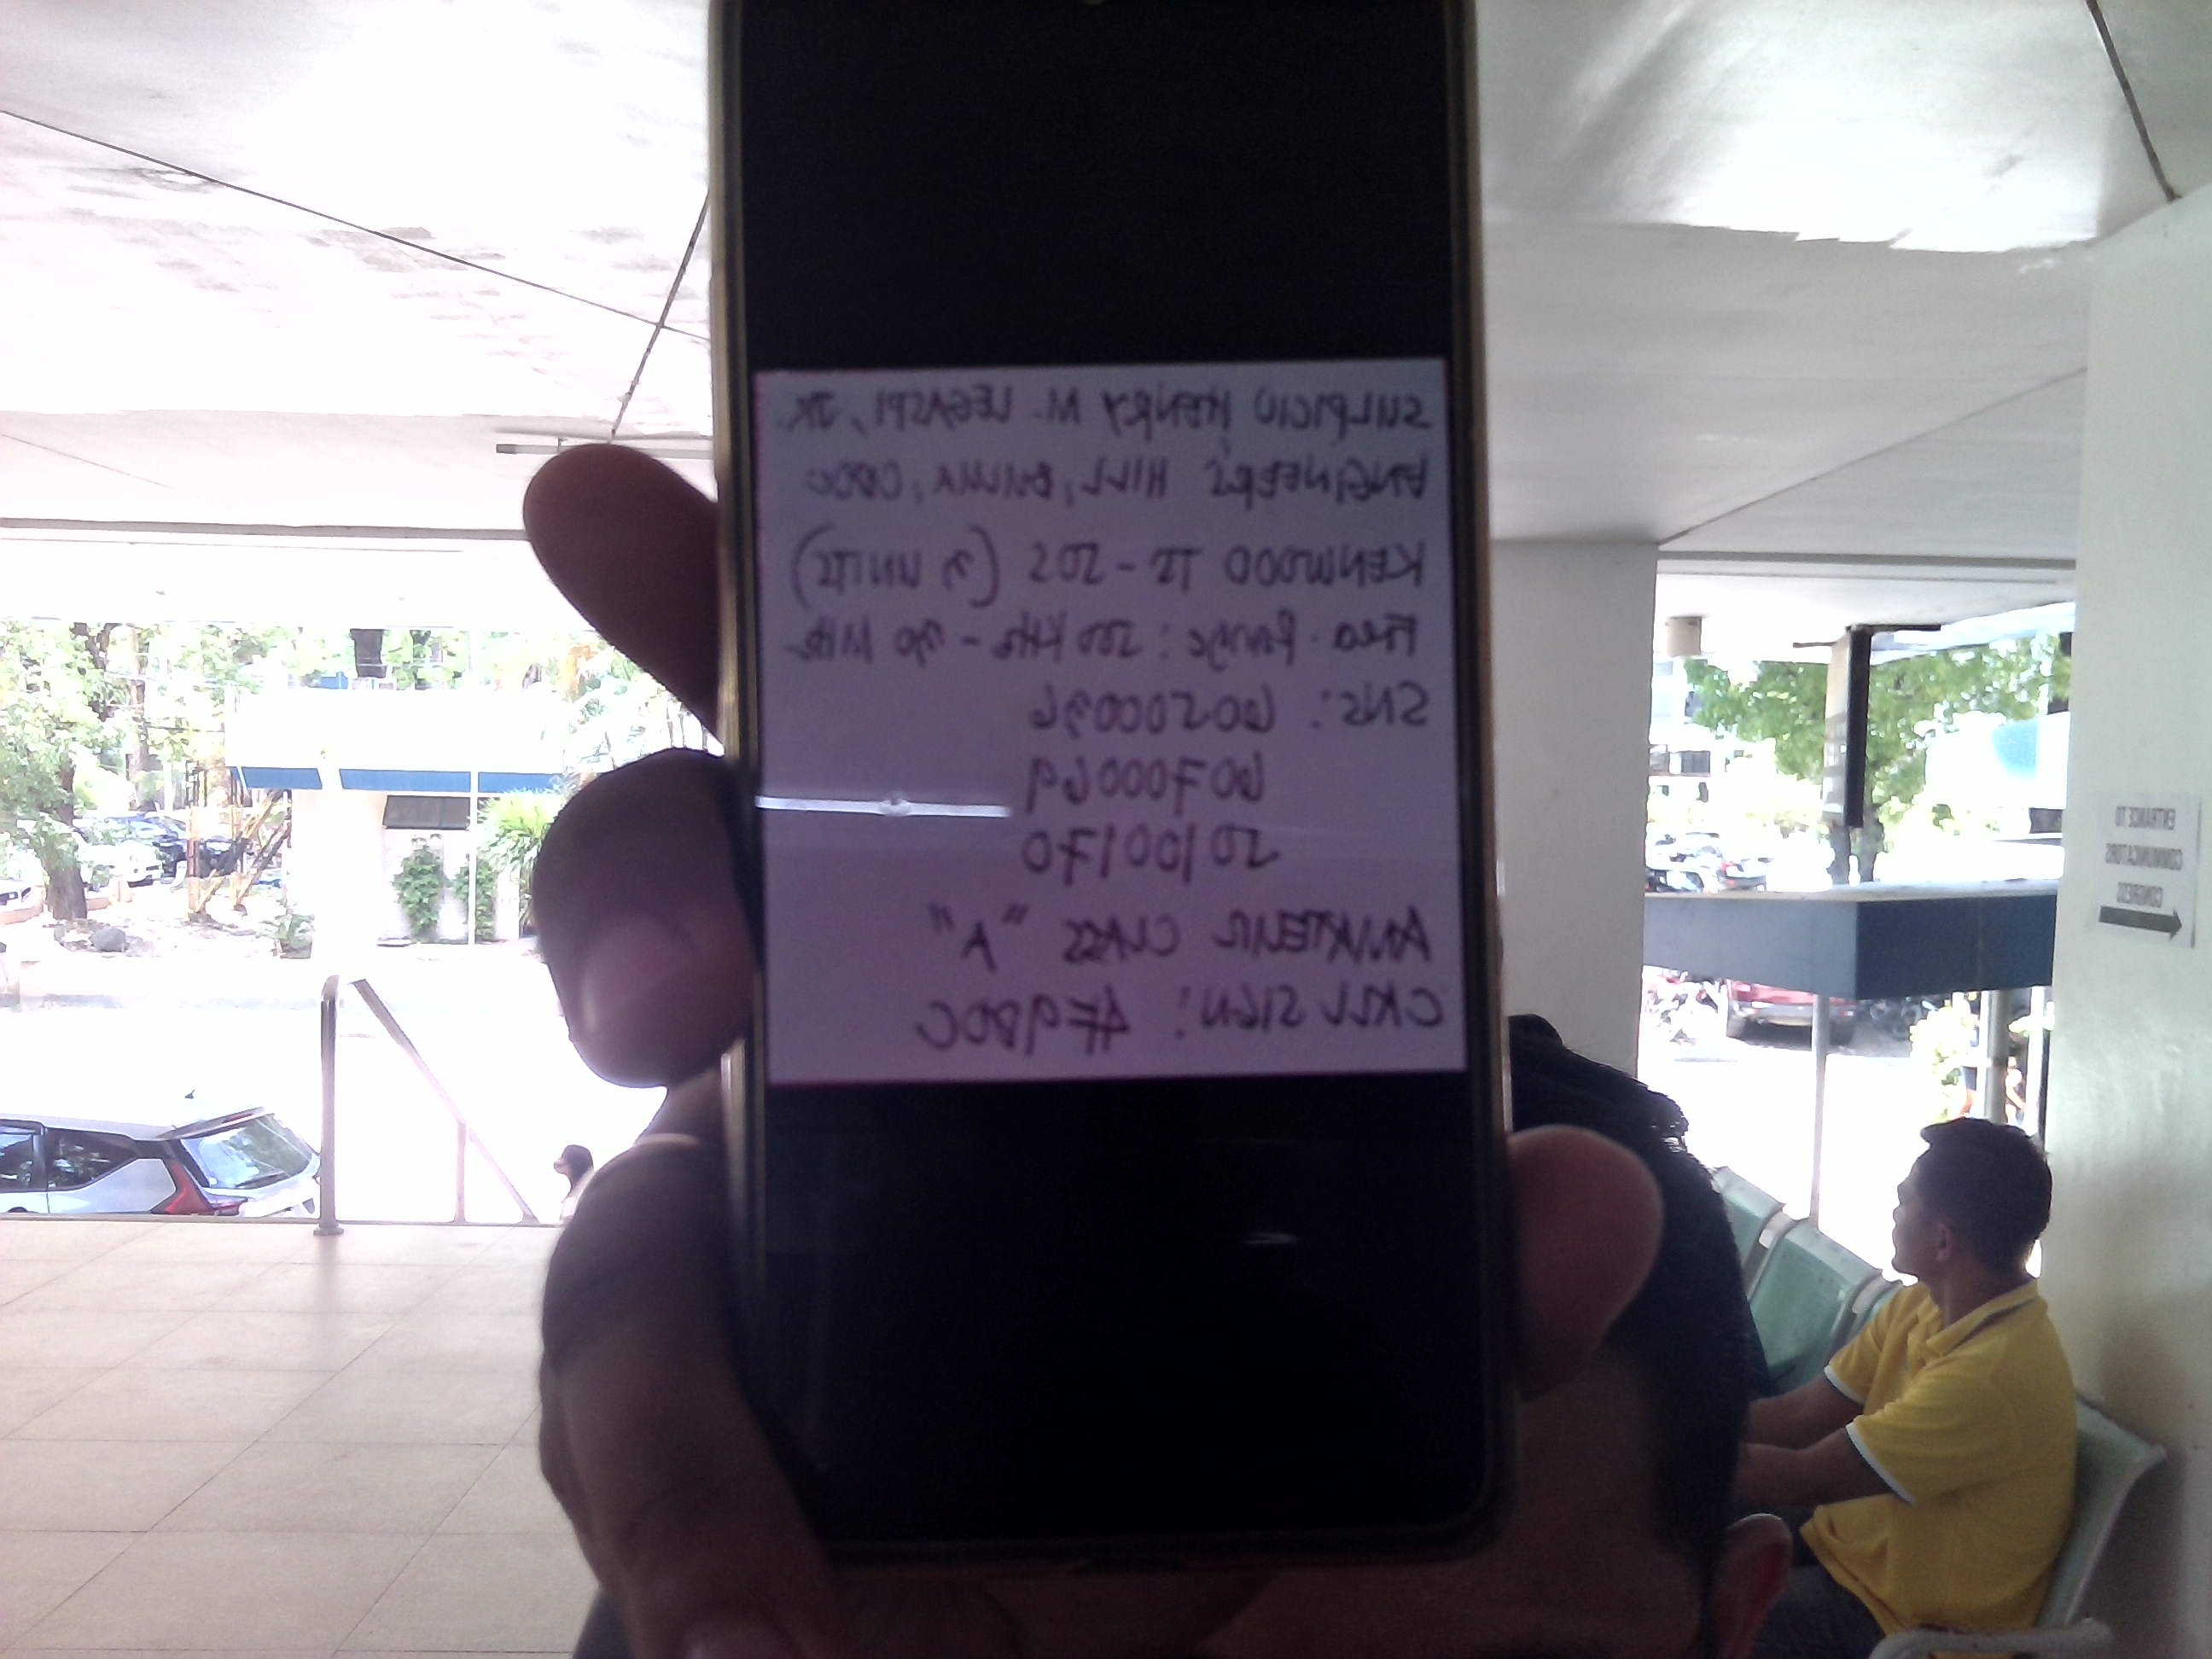 SULPICIO HENRY M. LEGASPI, JR.
ENGINEER'S HILL, BULUA, CDOC
KENWOOD TS-50S (3 UNITS)
Freq. Range: 500 KHz - 30 MHz
SNs: 60500096
60700069
50100170
AMATEUR CLASS "A"
CALL SIGN: 4F9BOC
ENTRANCE TO
COMMUNICATORS
CONGRESS